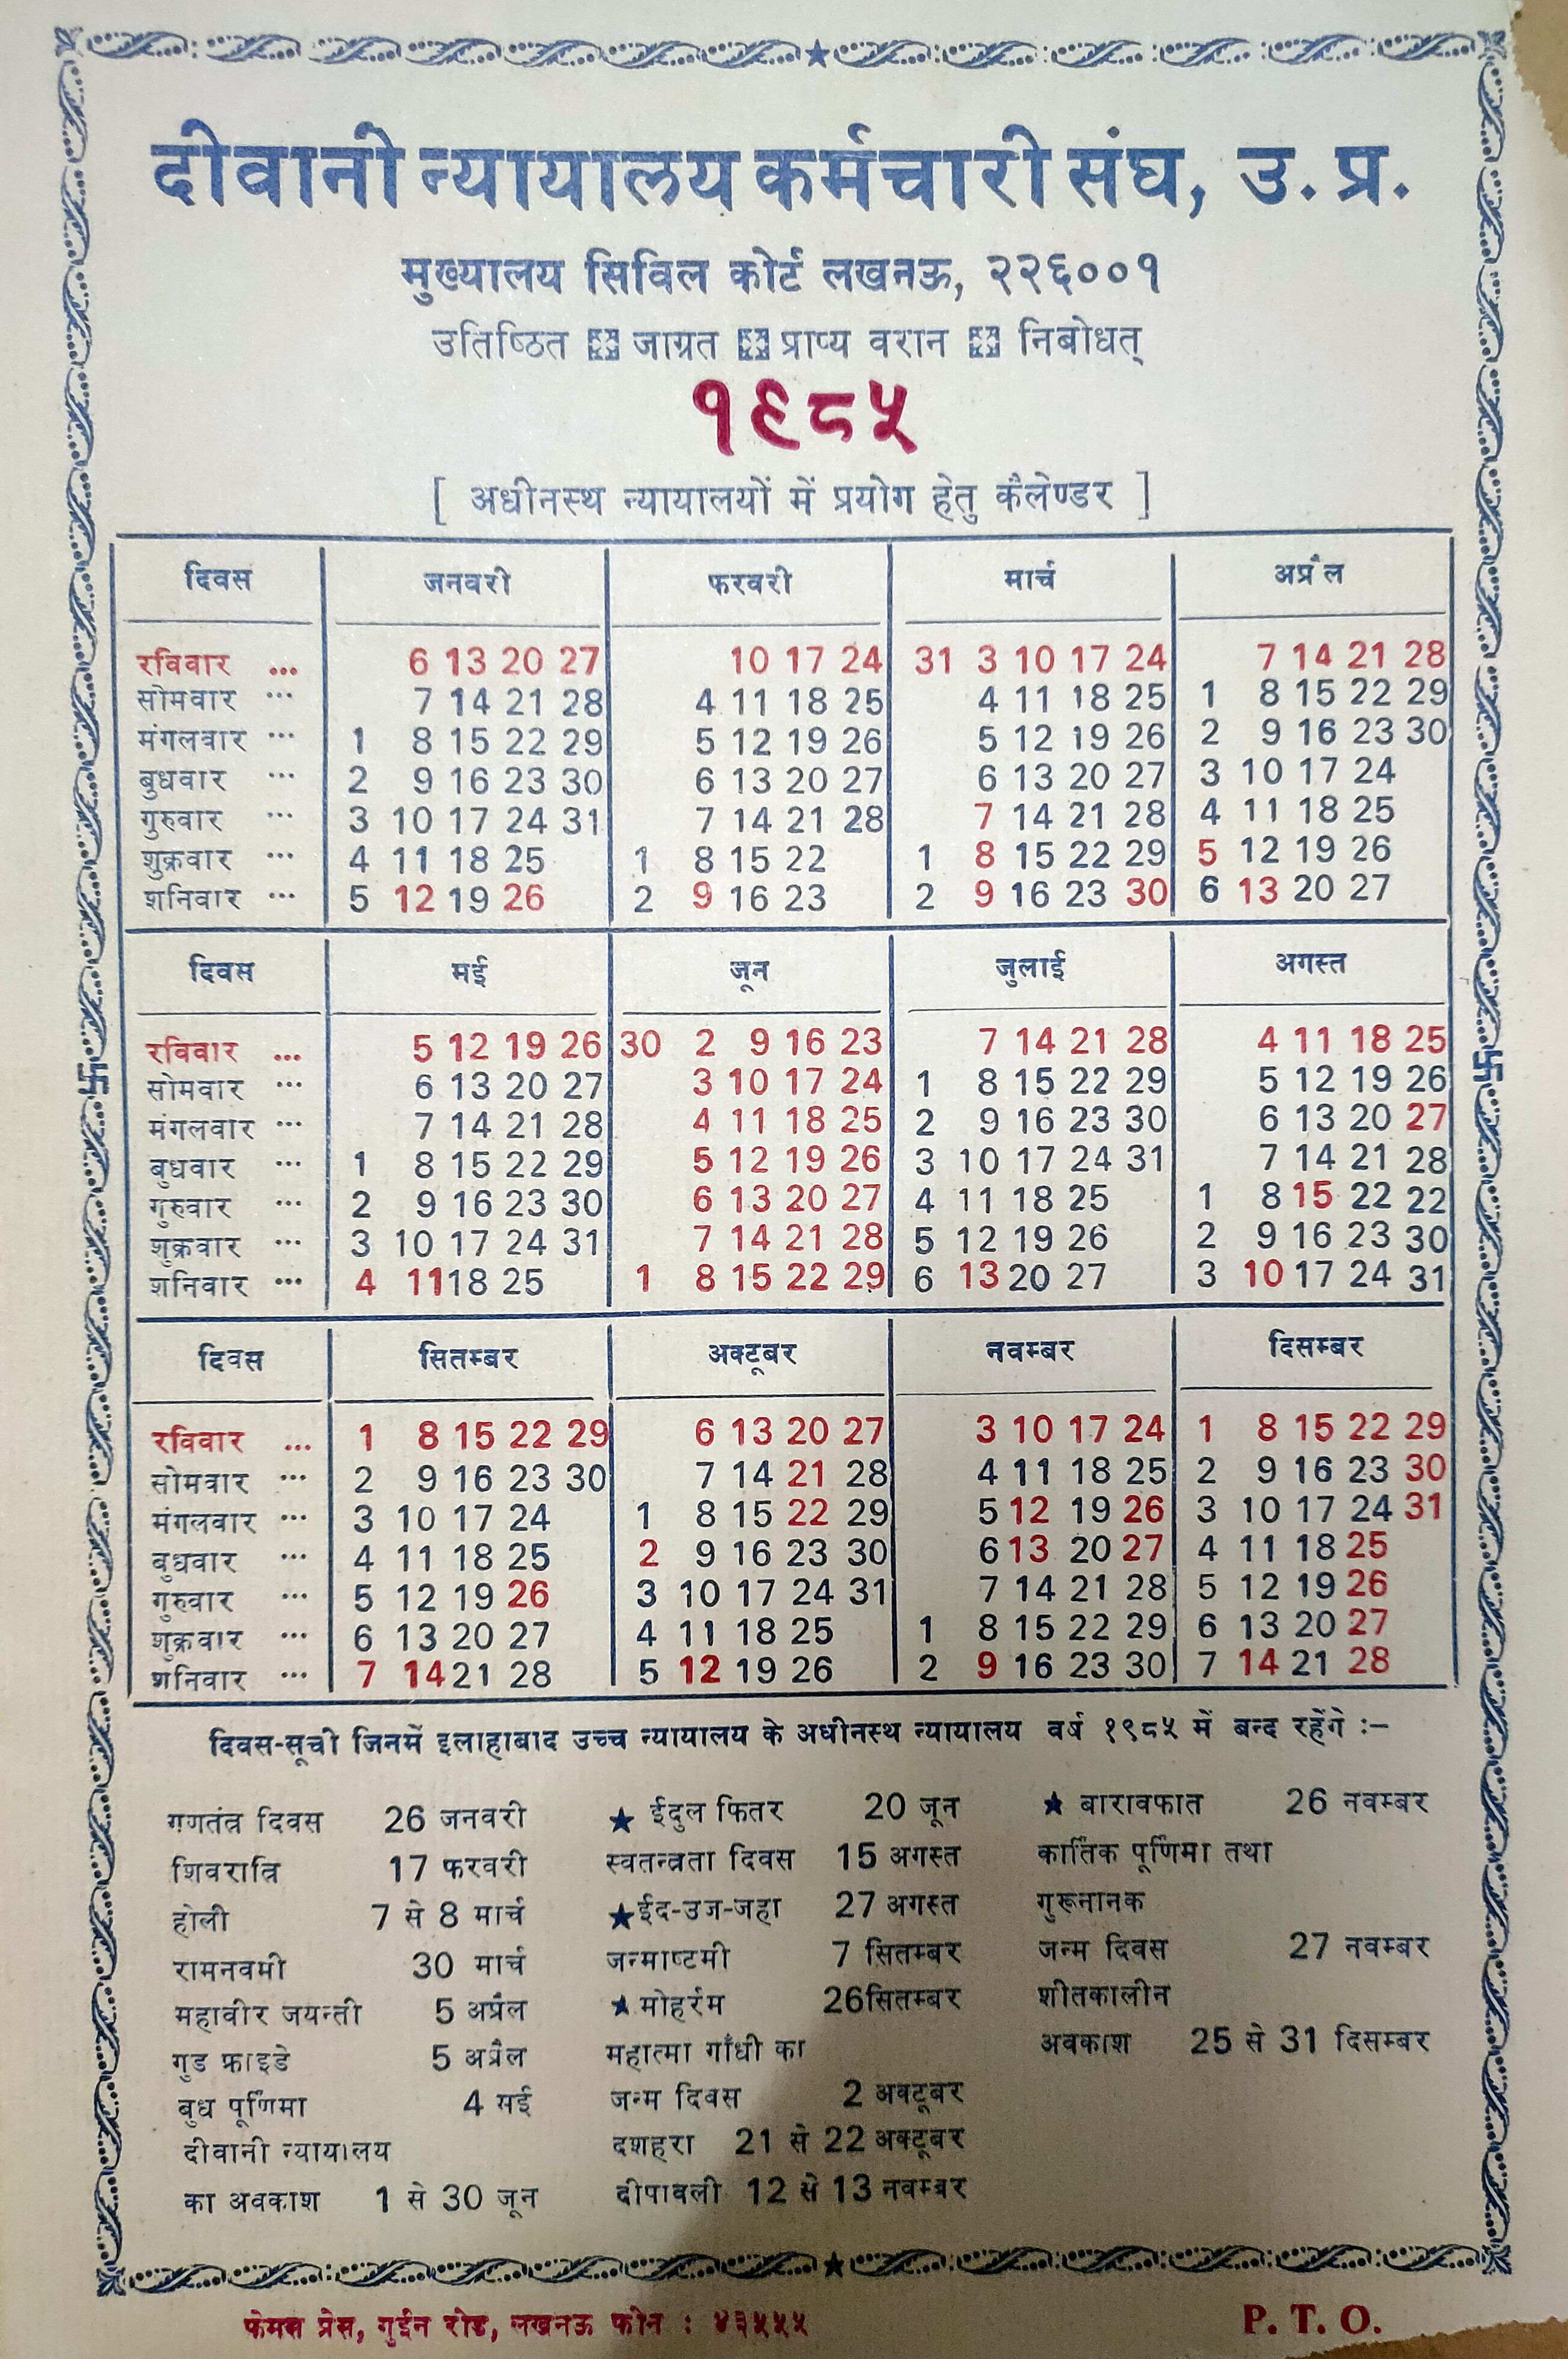 दीवानी न्यायालय कर्मचारी संघ, उ. प्र.
मुख्यालय सिविल कोर्ट लखनऊ, २२६००१
उतिष्ठित जाग्रत प्राप्य वरान निबोधत्
१९८५
[ अधीनस्थ न्यायालयों में प्रयोग हेतु कैलेण्डर ]
दिवस जनवरी फरवरी मार्च अप्रैल
रविवार ... 6 13 20 27 10 17 24 31 3 10 17 24 7 14 21 28
सोमवार ... 7 14 21 28 4 11 18 25 4 11 18 25 1 8 15 22 29
मंगलवार ... 1 8 15 22 29 5 12 19 26 5 12 19 26 2 9 16 23 30
बुधवार ... 2 9 16 23 30 6 13 20 27 6 13 20 27 3 10 17 24
गुरुवार ... 3 10 17 24 31 7 14 21 28 7 14 21 28 4 11 18 25
शुक्रवार ... 4 11 18 25 1 8 15 22 1 8 15 22 29 5 12 19 26
शनिवार ... 5 12 19 26 2 9 16 23 2 9 16 23 30 6 13 20 27
दिवस मई जून जुलाई अगस्त
रविवार ... 5 12 19 26 30 2 9 16 23 7 14 21 28 4 11 18 25
सोमवार ... 6 13 20 27 3 10 17 24 1 8 15 22 29 5 12 19 26
मंगलवार ... 7 14 21 28 4 11 18 25 2 9 16 23 30 6 13 20 27
बुधवार ... 1 8 15 22 29 5 12 19 26 3 10 17 24 31 7 14 21 28
गुरुवार ... 2 9 16 23 30 6 13 20 27 4 11 18 25 1 8 15 22 22
शुक्रवार ... 3 10 17 24 31 7 14 21 28 5 12 19 26 2 9 16 23 30
शनिवार ... 4 11 18 25 1 8 15 22 29 6 13 20 27 3 10 17 24 31
दिवस सितम्बर अक्टूबर नवम्बर दिसम्बर
रविवार ... 1 8 15 22 29 6 13 20 27 3 10 17 24 1 8 15 22 29
सोमवार ... 2 9 16 23 30 7 14 21 28 4 11 18 25 2 9 16 23 30
मंगलवार ... 3 10 17 24 1 8 15 22 29 5 12 19 26 3 10 17 24 31
बुधवार ... 4 11 18 25 2 9 16 23 30 6 13 20 27 4 11 18 25
गुरुवार ... 5 12 19 26 3 10 17 24 31 7 14 21 28 5 12 19 26
शुक्रवार ... 6 13 20 27 4 11 18 25 1 8 15 22 29 6 13 20 27
शनिवार ... 7 14 21 28 5 12 19 26 2 9 16 23 30 7 14 21 28
दिवस-सूची जिनमें इलाहाबाद उच्च न्यायालय के अधीनस्थ न्यायालय वर्ष १९८५ में बन्द रहेंगे :-
गणतंत्र दिवस 26 जनवरी
शिवरात्रि 17 फरवरी
होली 7 से 8 मार्च
रामनवमी 30 मार्च
महावीर जयन्ती 5 अप्रैल
गुड फ्राइडे 5 अप्रैल
बुध पूर्णिमा 4 मई
दीवानी न्यायालय
का अवकाश 1 से 30 जून
★ ईदुल फितर 20 जून
स्वतन्त्रता दिवस 15 अगस्त
★ ईद-उज-जहा 27 अगस्त
जन्माष्टमी 7 सितम्बर
★ मोहर्रम 26सितम्बर
महात्मा गाँधी का
जन्म दिवस 2 अक्टूबर
दशहरा 21 से 22 अक्टूबर
दीपावली 12 से 13 नवम्बर
★ बारावफात 26 नवम्बर
कार्तिक पूर्णिमा तथा
गुरूनानक
जन्म दिवस 27 नवम्बर
शीतकालीन
अवकाश 25 से 31 दिसम्बर
फेमस प्रेस, गुईन रोड, लखनऊ फोन : ४३५५५
P. T. O.